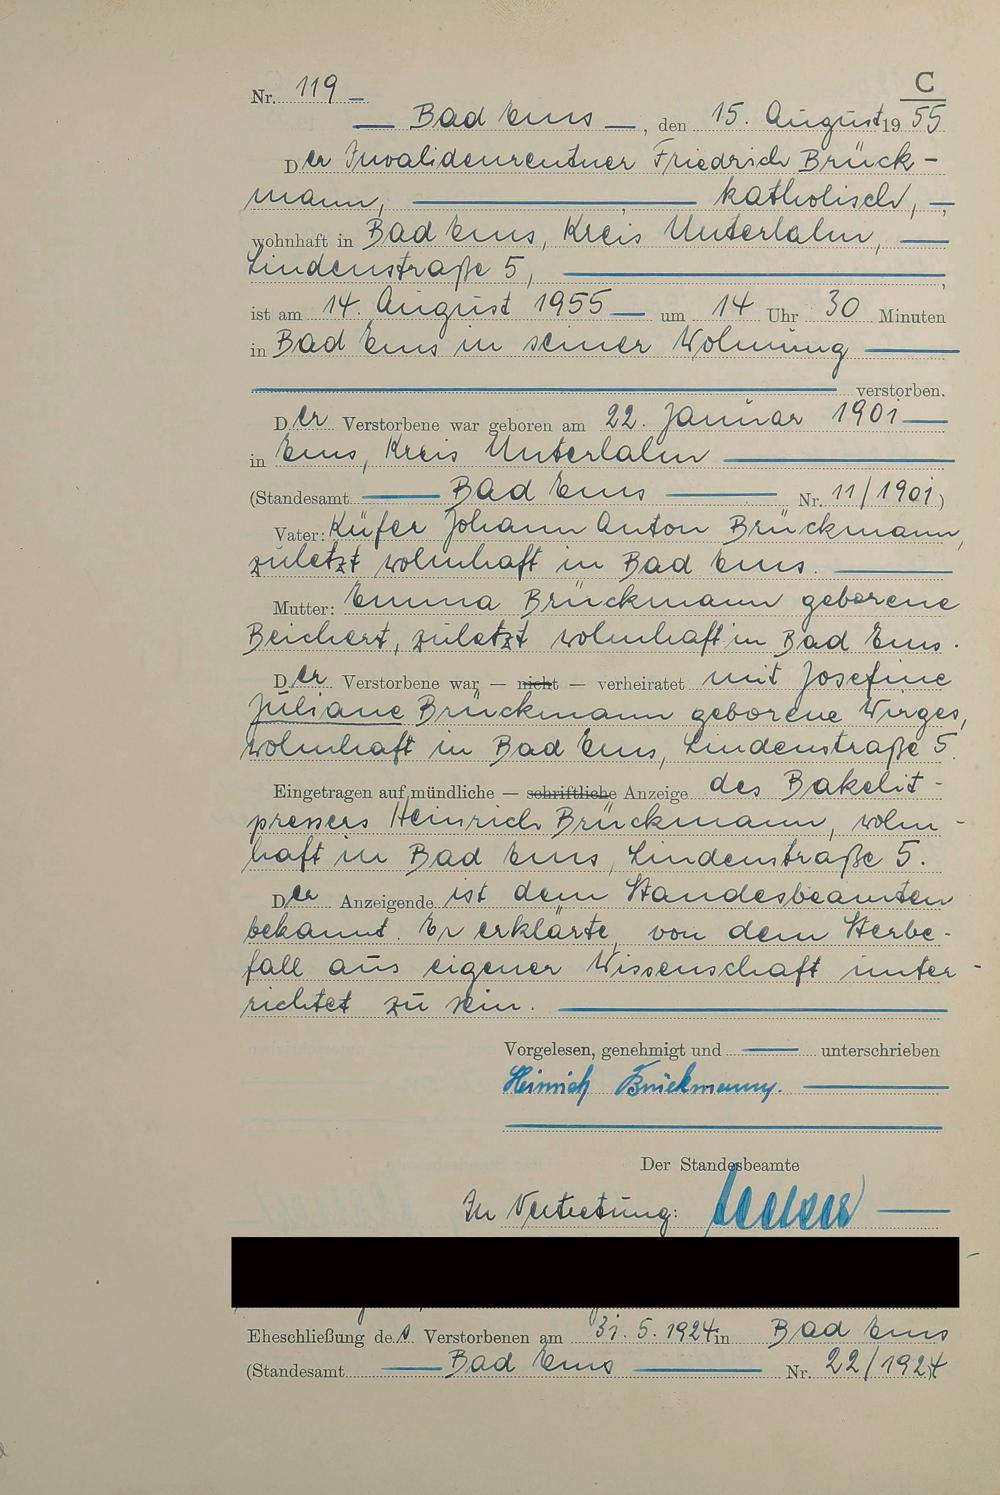 C
Nr. 119 —
— Bad Ems —, den 15. August 1955
Der Invalidenrentner Friedrich Brück-
mann, —, — katholisch, —,
wohnhaft in Bad Ems, Kreis Unterlahn, —
Lindenstraße 5, —,
ist am 14. August 1955 — um 14 Uhr 30 Minuten
in Bad Ems in seiner Wohnung —
— verstorben.
Der Verstorbene war geboren am 22. Januar 1901 —
in Ems, Kreis Unterlahn —
(Standesamt — Bad Ems — Nr. 11/1901)
Vater: Küfer Johann Anton Brückmann,
zuletzt wohnhaft in Bad Ems. —
Mutter: Emma Brückmann geborene
Beichert, zuletzt wohnhaft in Bad Ems.
Der Verstorbene war — nicht — verheiratet mit Josefine
Juliane Brückmann geborene Wirges,
wohnhaft in Bad Ems, Lindenstraße 5.
Eingetragen auf mündliche — schriftliche Anzeige des Bakelit-
pressers Heinrich Brückmann, wohn-
haft in Bad Ems, Lindenstraße 5.
Der Anzeigende ist dem Standesbeamten
bekannt. Er erklärte, von dem Sterbe-
fall aus eigener Wissenschaft unter-
richtet zu sein. —
Vorgelesen, genehmigt und — unterschrieben
Heinrich Brückmann. —
Der Standesbeamte
In Vertretung: —
Eheschließung des Verstorbenen am 31.5.1924 in Bad Ems
(Standesamt — Bad Ems — Nr. 22/1924)